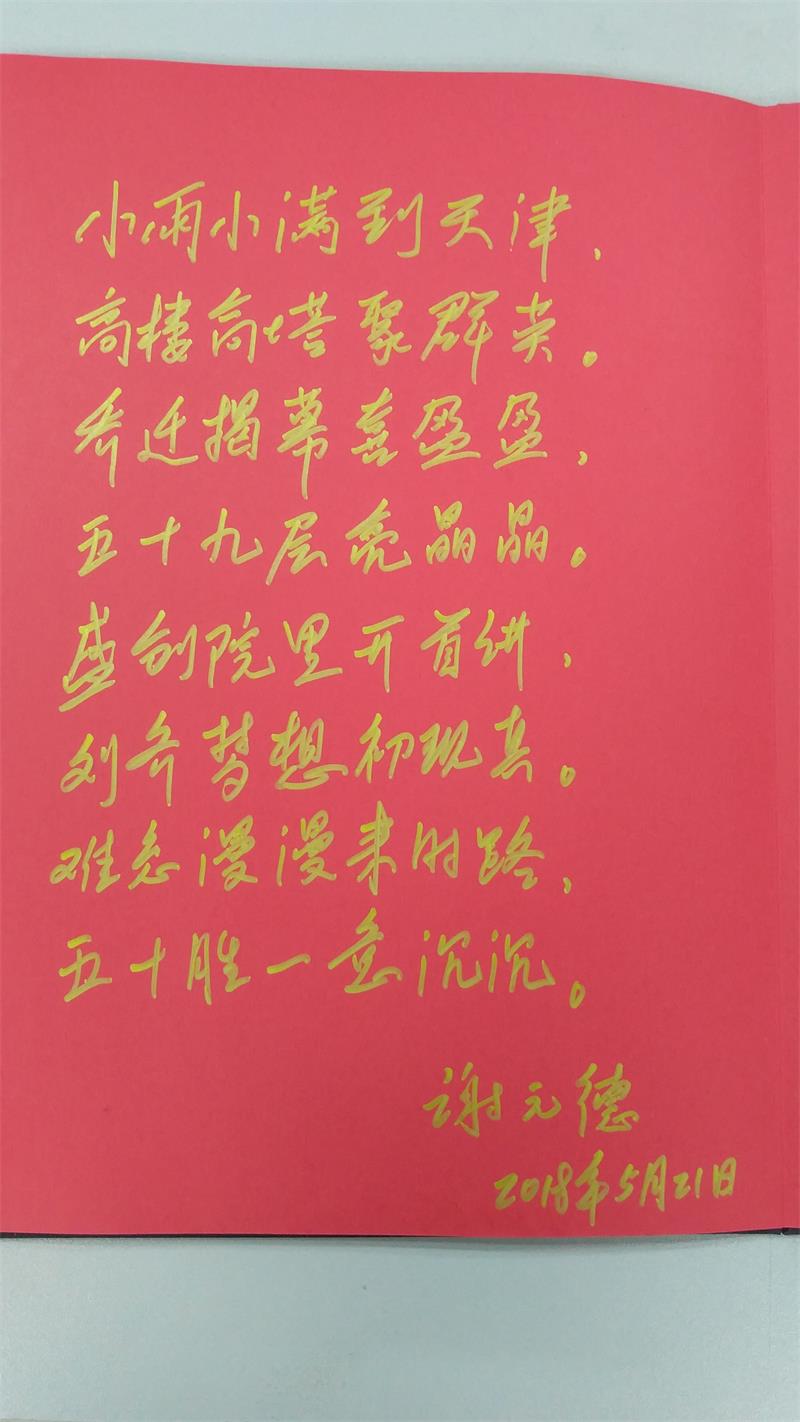 小雨小满到天津，
高楼高塔聚群英。
乔迁揭幕喜盈盈，
五十九层亮晶晶。
盛创院里开首讲，
刘乔梦想初现真。
难忘漫漫来时路，
五十胜一意沉沉。
谢元德
2018年5月21日